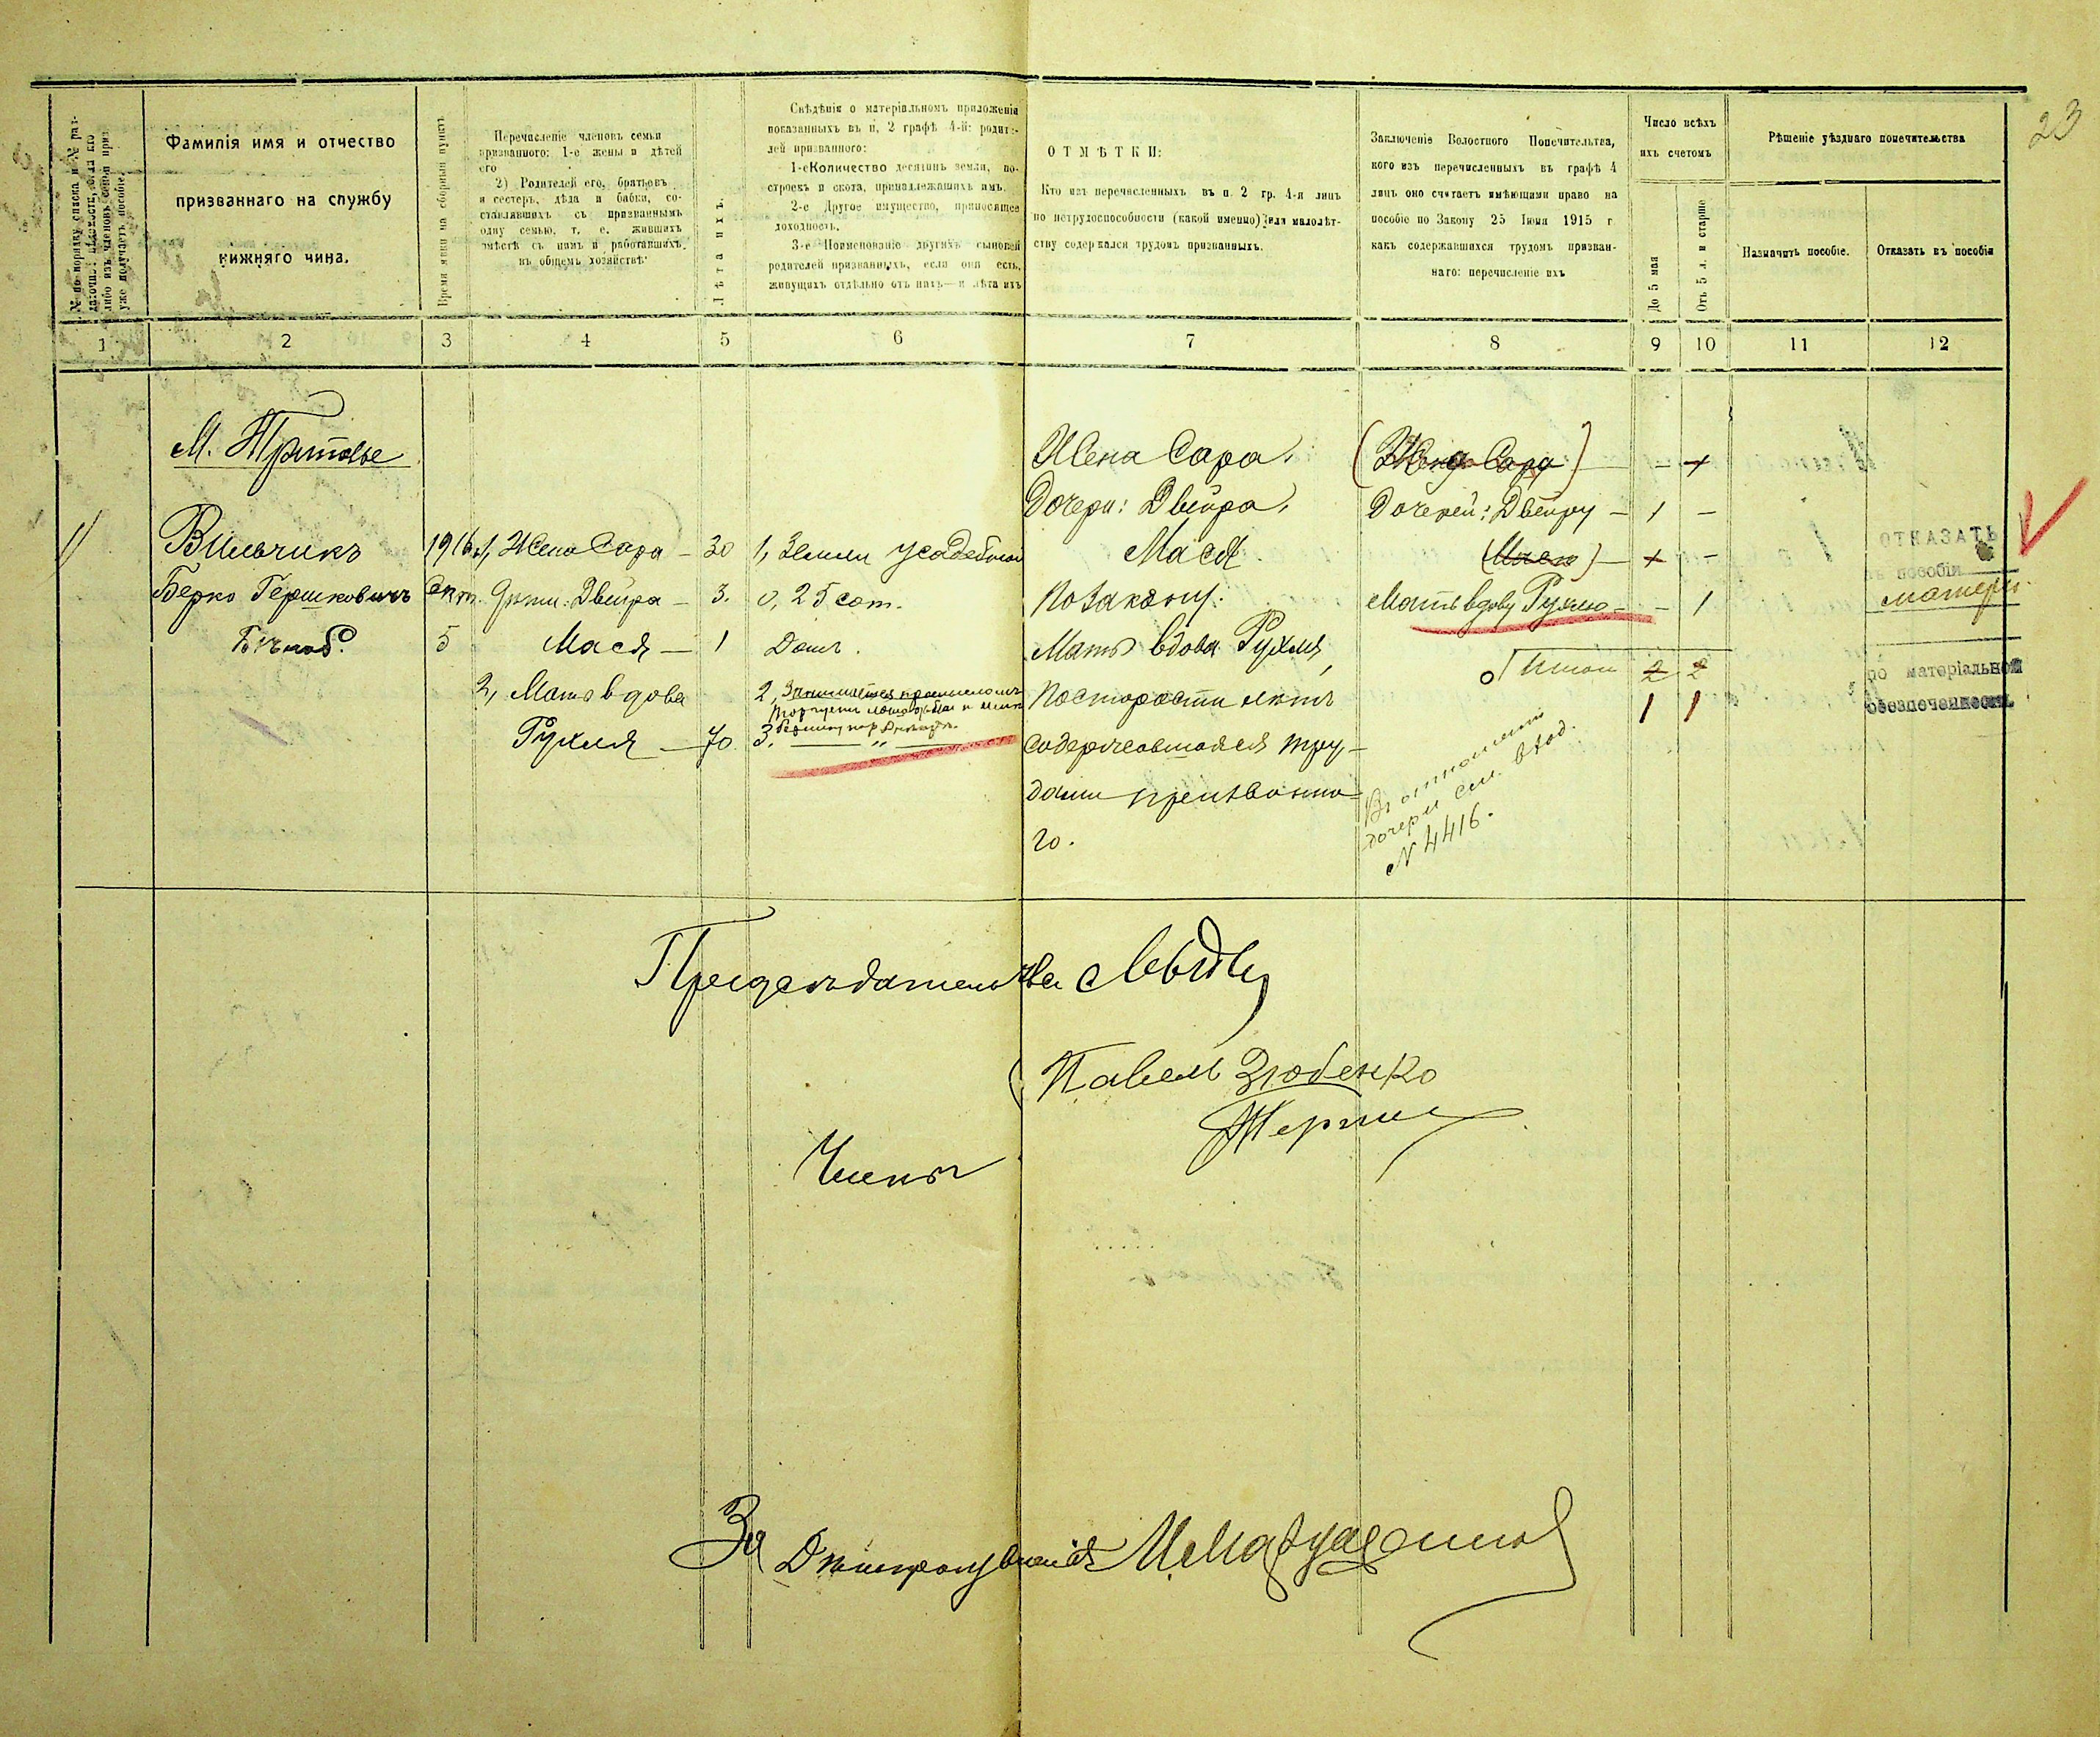 23
№ по порядку списка и № раз-
даточной вѣдомости, если кто
либо изъ членовъ семьи приз.
уже получаетъ пособіе.
Фамилія имя и отчество
призваннаго на службу
нижняго чина.
Время явки на сборный пунктъ
Перечисленіе членовъ семьи
призваннаго: 1-е жены и дѣтей
его
2) Родителей его, братьевъ
и сестеръ, дѣда и бабки, со-
ставлявшихъ съ призваннымъ
одну семью, т. е. жившихъ
вмѣстѣ съ нимъ и работавшихъ
въ общемъ хозяйствѣ
Лѣта ихъ.
Свѣдѣнія о матеріальномъ приложенія
показанныхъ въ п, 2 графѣ 4-й: родите-
лей призваннаго:
1-еКоличество десятинъ земли, по-
строекъ и скота, принадлежащихъ имъ.
2-е Другое имущество, приносящее
доходность.
3-е Поименованіе другихъ сыновей
родителей призванныхъ, если они есть,
живущихъ отдѣльно отъ нихъ—и лѣта ихъ
ОТМѢТКИ:
Кто изъ перечисленныхъ въ п. 2 гр. 4-я лицъ
по нетрудоспособности (какой именно) или малолѣт-
ству содержался трудомъ призванныхъ.
Заключеніе Волостного Попечительства,
кого изъ перечисленныхъ въ графѣ 4
лицъ оно считаетъ имѣющими право на
пособіе по Закону 25 Іюня 1915 г
какъ содержавшихся трудомъ призван-
наго: перечисленіе ихъ
Число всѣхъ
ихъ счетомъ
До 5 мая
Отъ 5 л. и старше
Рѣшеніе уѣзднаго попечительства
Назначить пособіе.
Отказать въ пособіи
1 2 3 4 5 6 7 8 9 10 11 12
М. Тритовье
1/
Вильчикъ
Берко Гершковичъ
1916 г.
Окт.
5
1, Жена Сара — 30
Дѣти: Двейра — 3.
Мася — 1
2, Мать вдова
Рухля — 70
1, Земли усадебной
0,25 сот.
Домъ.
2, Занимается промысломъ
3. — „ —
Жена Сара.
Дочери: Двейра,
Мася.
По Закону:
Мать вдова Рухля,
По старости лѣтъ
содержавшаяся тру-
дами призванна-
го.
(Жена Сара) — —
Дочерей: Двейру — 1 —
(Масю) — —
Мать вдову Рухлю — — 1
Итого 2 2
1 1
Въ отношеніи
дочери см. вход.
№ 4416.
ОТКАЗАТЬ
въ пособіи
матери
по матеріальной
обезпеченности
Предсѣдатель
Павелъ Зюбенко
Члены
За Дѣлопроизводителя